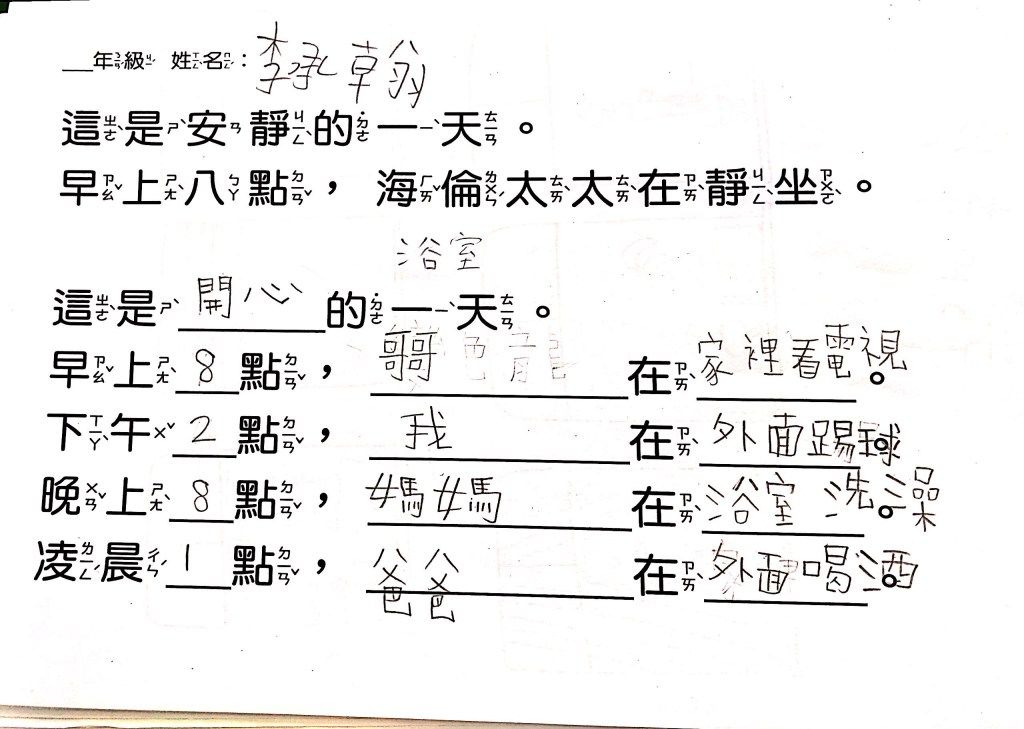 __年級 姓名：李承翰
這是安靜的一天。
早上八點，海倫太太在靜坐。
浴室
這是開心的一天。
早上8點，哥哥在家裡看電視。
下午2點，我在外面踢球。
晚上8點，媽媽在浴室洗澡。
凌晨1點，爸爸在外面喝酒。